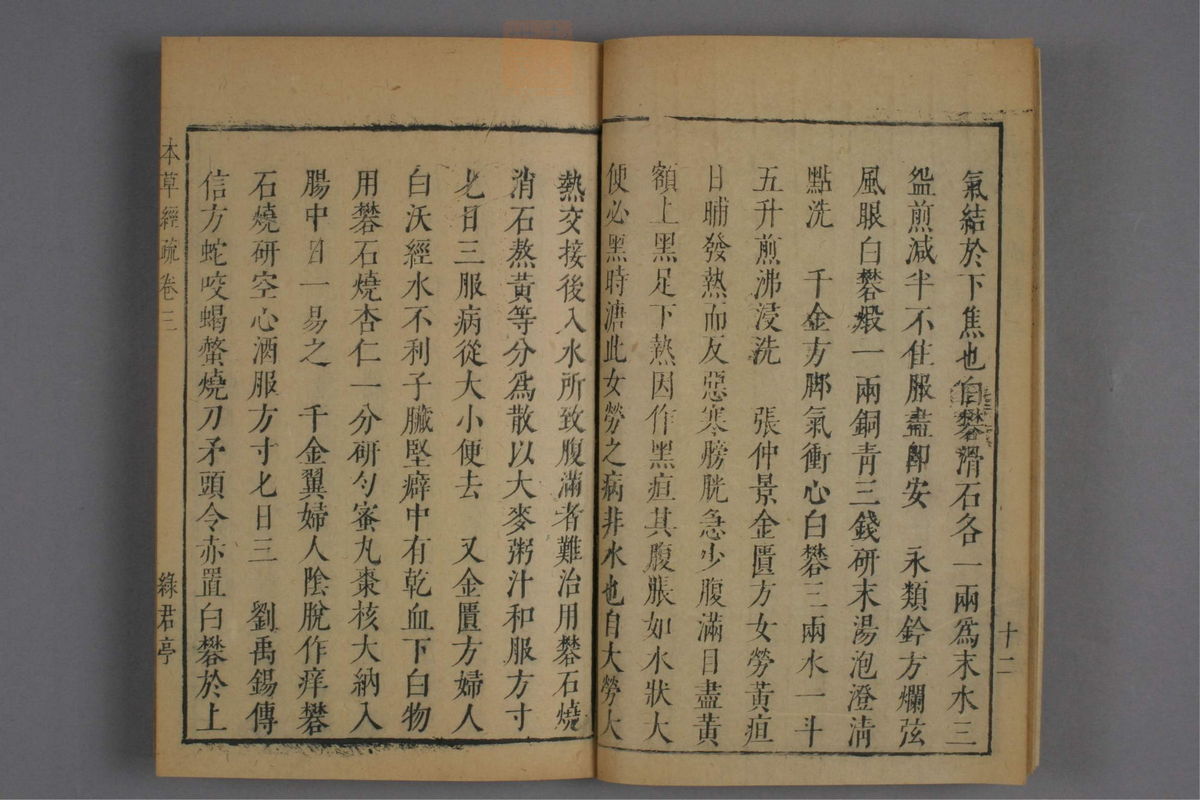 十二
氣結於下焦也白礬滑石各一兩爲末水三
盌煎減半不住服盡卽安　永類鈐方爛弦
風眼白礬煅一兩銅青三錢研末湯泡澄清
點洗　千金方脚氣衝心白礬三兩水一斗
五升煎沸浸洗　張仲景金匱方女勞黃疸
日晡發熱而反惡寒膀胱急少腹滿目盡黃
額上黑足下熱因作黑疸其腹脹如水狀大
便必黑時溏此女勞之病非水也自大勞大
熱交接後入水所致腹滿者難治用礬石燒
消石熬黃等分爲散以大麥粥汁和服方寸
匕日三服病從大小便去　又金匱方婦人
白沃經水不利子臟堅癖中有乾血下白物
用礬石燒杏仁一分研勻蜜丸棗核大納入
腸中日一易之　千金翼婦人陰脫作痒礬
石燒研空心酒服方寸匕日三　劉禹錫傳
信方蛇咬蝎螫燒刀矛頭令赤置白礬於上
本草經疏卷三
綠君亭